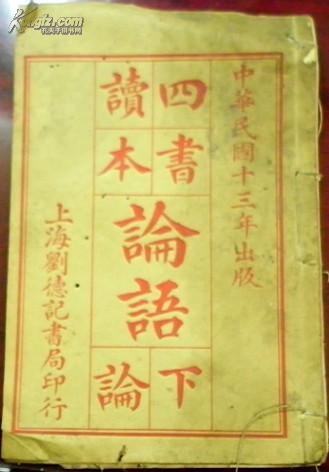 中華民國十三年出版
四書
讀本
論語
下論
上海劉德記書局印行
Kfzz.com
孔夫子旧书网